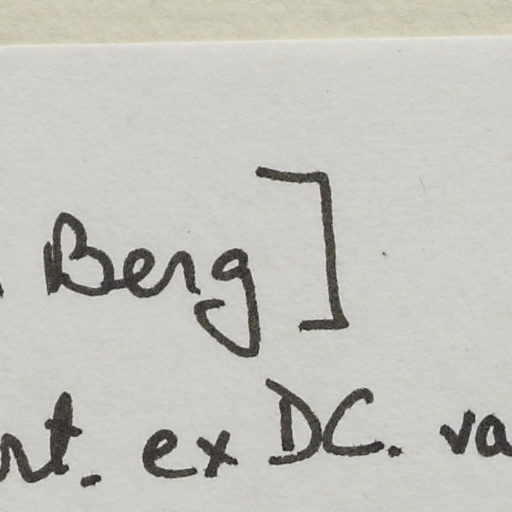 Berg]
rt. ex DC. va